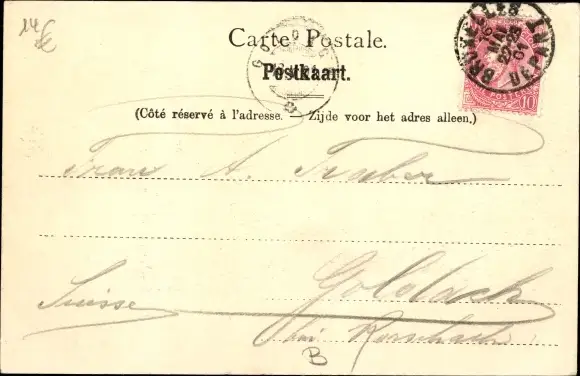 14 €
Carte Postale.
Postkaart.
(Côté réservé à l'adresse. — Zijde voor het adres alleen.)
BRUXELLES
DEPART
MAI
1901
10
Frau A. Traber
Goldach
Suisse
bei Rorschach
B